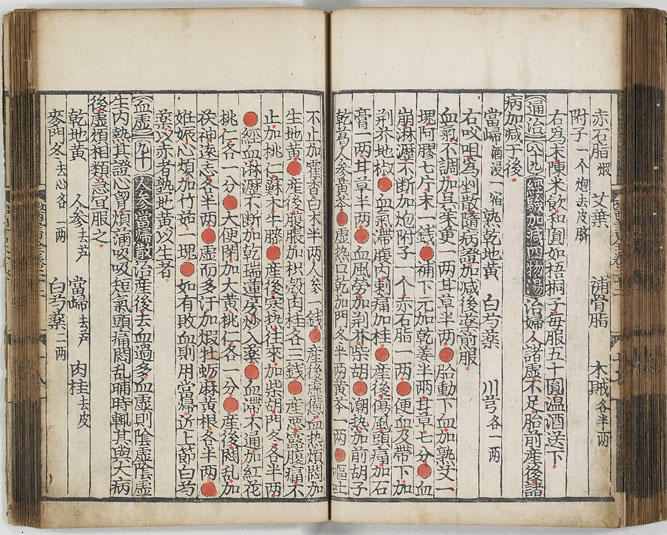 赤石脂煅 艾葉 補骨脂 木賊各半兩
附子一个炮去皮臍
右爲末陳米飮和圓如梧桐子每服五十圓温酒送下
通治 八十九 經驗加減四物湯 治婦人諸虛不足胎前産後諸
病加減于後
當歸酒浸一宿 熟乾地黃 白芍藥 川芎各一兩
右㕮咀爲剉散隨病證加減後藥煎服
血氣不調加呉茱萸一兩甘草半兩 胎動下血加熟艾一
塊阿膠七片末一錢 補下元加乾姜半兩甘草七分 血
崩淋瀝不斷加炮附子一个赤石脂一兩 便血及帶下加
荆芥地楡 血氣滯腹内刺痛加桂 産後傷風頭痛加石
膏一兩甘草半兩 血風勞加荆芥柴胡 潮熱加前胡子
乾葛人參黃芩 虛熱口乾加門冬半兩黃芩一兩 嘔吐
不止加藿香白朮半兩人參一錢 産後虛憊血熱煩悶加
生地黃 産後腹脹加枳殼肉桂各三錢 産後惡露腹痛不
止加桃仁蘇木牛膝 産後寒熱往來加柴胡門冬各半兩
經血淋瀝不斷加乾瑞蓮房炒入藥 血滯不通加紅花
桃仁各一分 大便閉加大黃桃仁各一分 産後悶乱加
茯神遠志各半兩 虛而多汗加煆牡蛎麻黃根各半兩
妊娠心煩加竹茹一塊 如有敗血則用當歸近上節白芍
藥以赤者熟地黃以生者
血虛 九十 人參當歸散 治産後去血過多血虛則陰虛陰虛
生内熱其證心胷煩滿吸吸短氣頭痛悶乱晡時輒甚與大病
後虛煩相類急宜服之
乾地黃 人參去芦 當歸去芦 肉桂去皮
麥門冬去心各一兩 白芍藥二兩